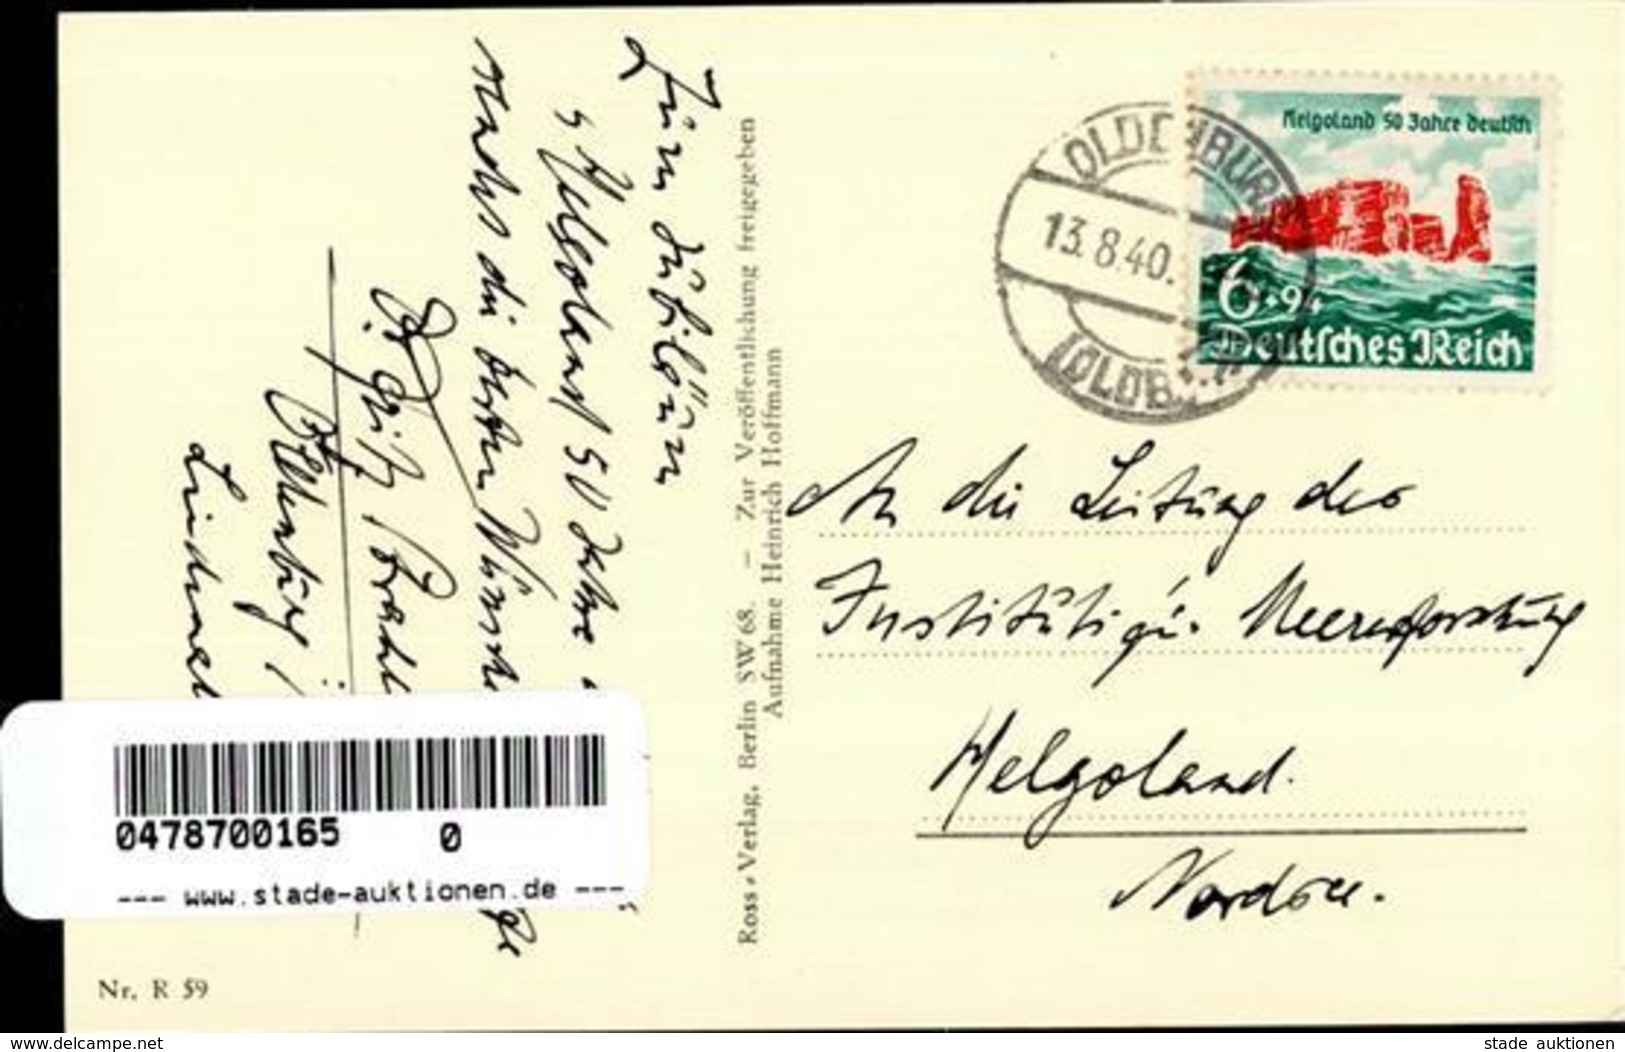 Zum Jubiläum
" Helgoland 50 Jahre
die besten Wünsche
Dr. Fritz Strahl
Oldenburg i.
Ross-Verlag, Berlin SW 68. – Zur Veröffentlichung freigegeben
Aufnahme Heinrich Hoffmann
OLDENBURG
13.8.40.
(OLDB)
Helgoland 50 Jahre deutsch
6+94
Deutsches Reich
An die Leitung des
Instituts für Meeresforschung
Helgoland.
Nordsee.
0478700165 0
--- www.stade-auktionen.de ---
Nr. R 59
www.delcampe.net
stade auktionen